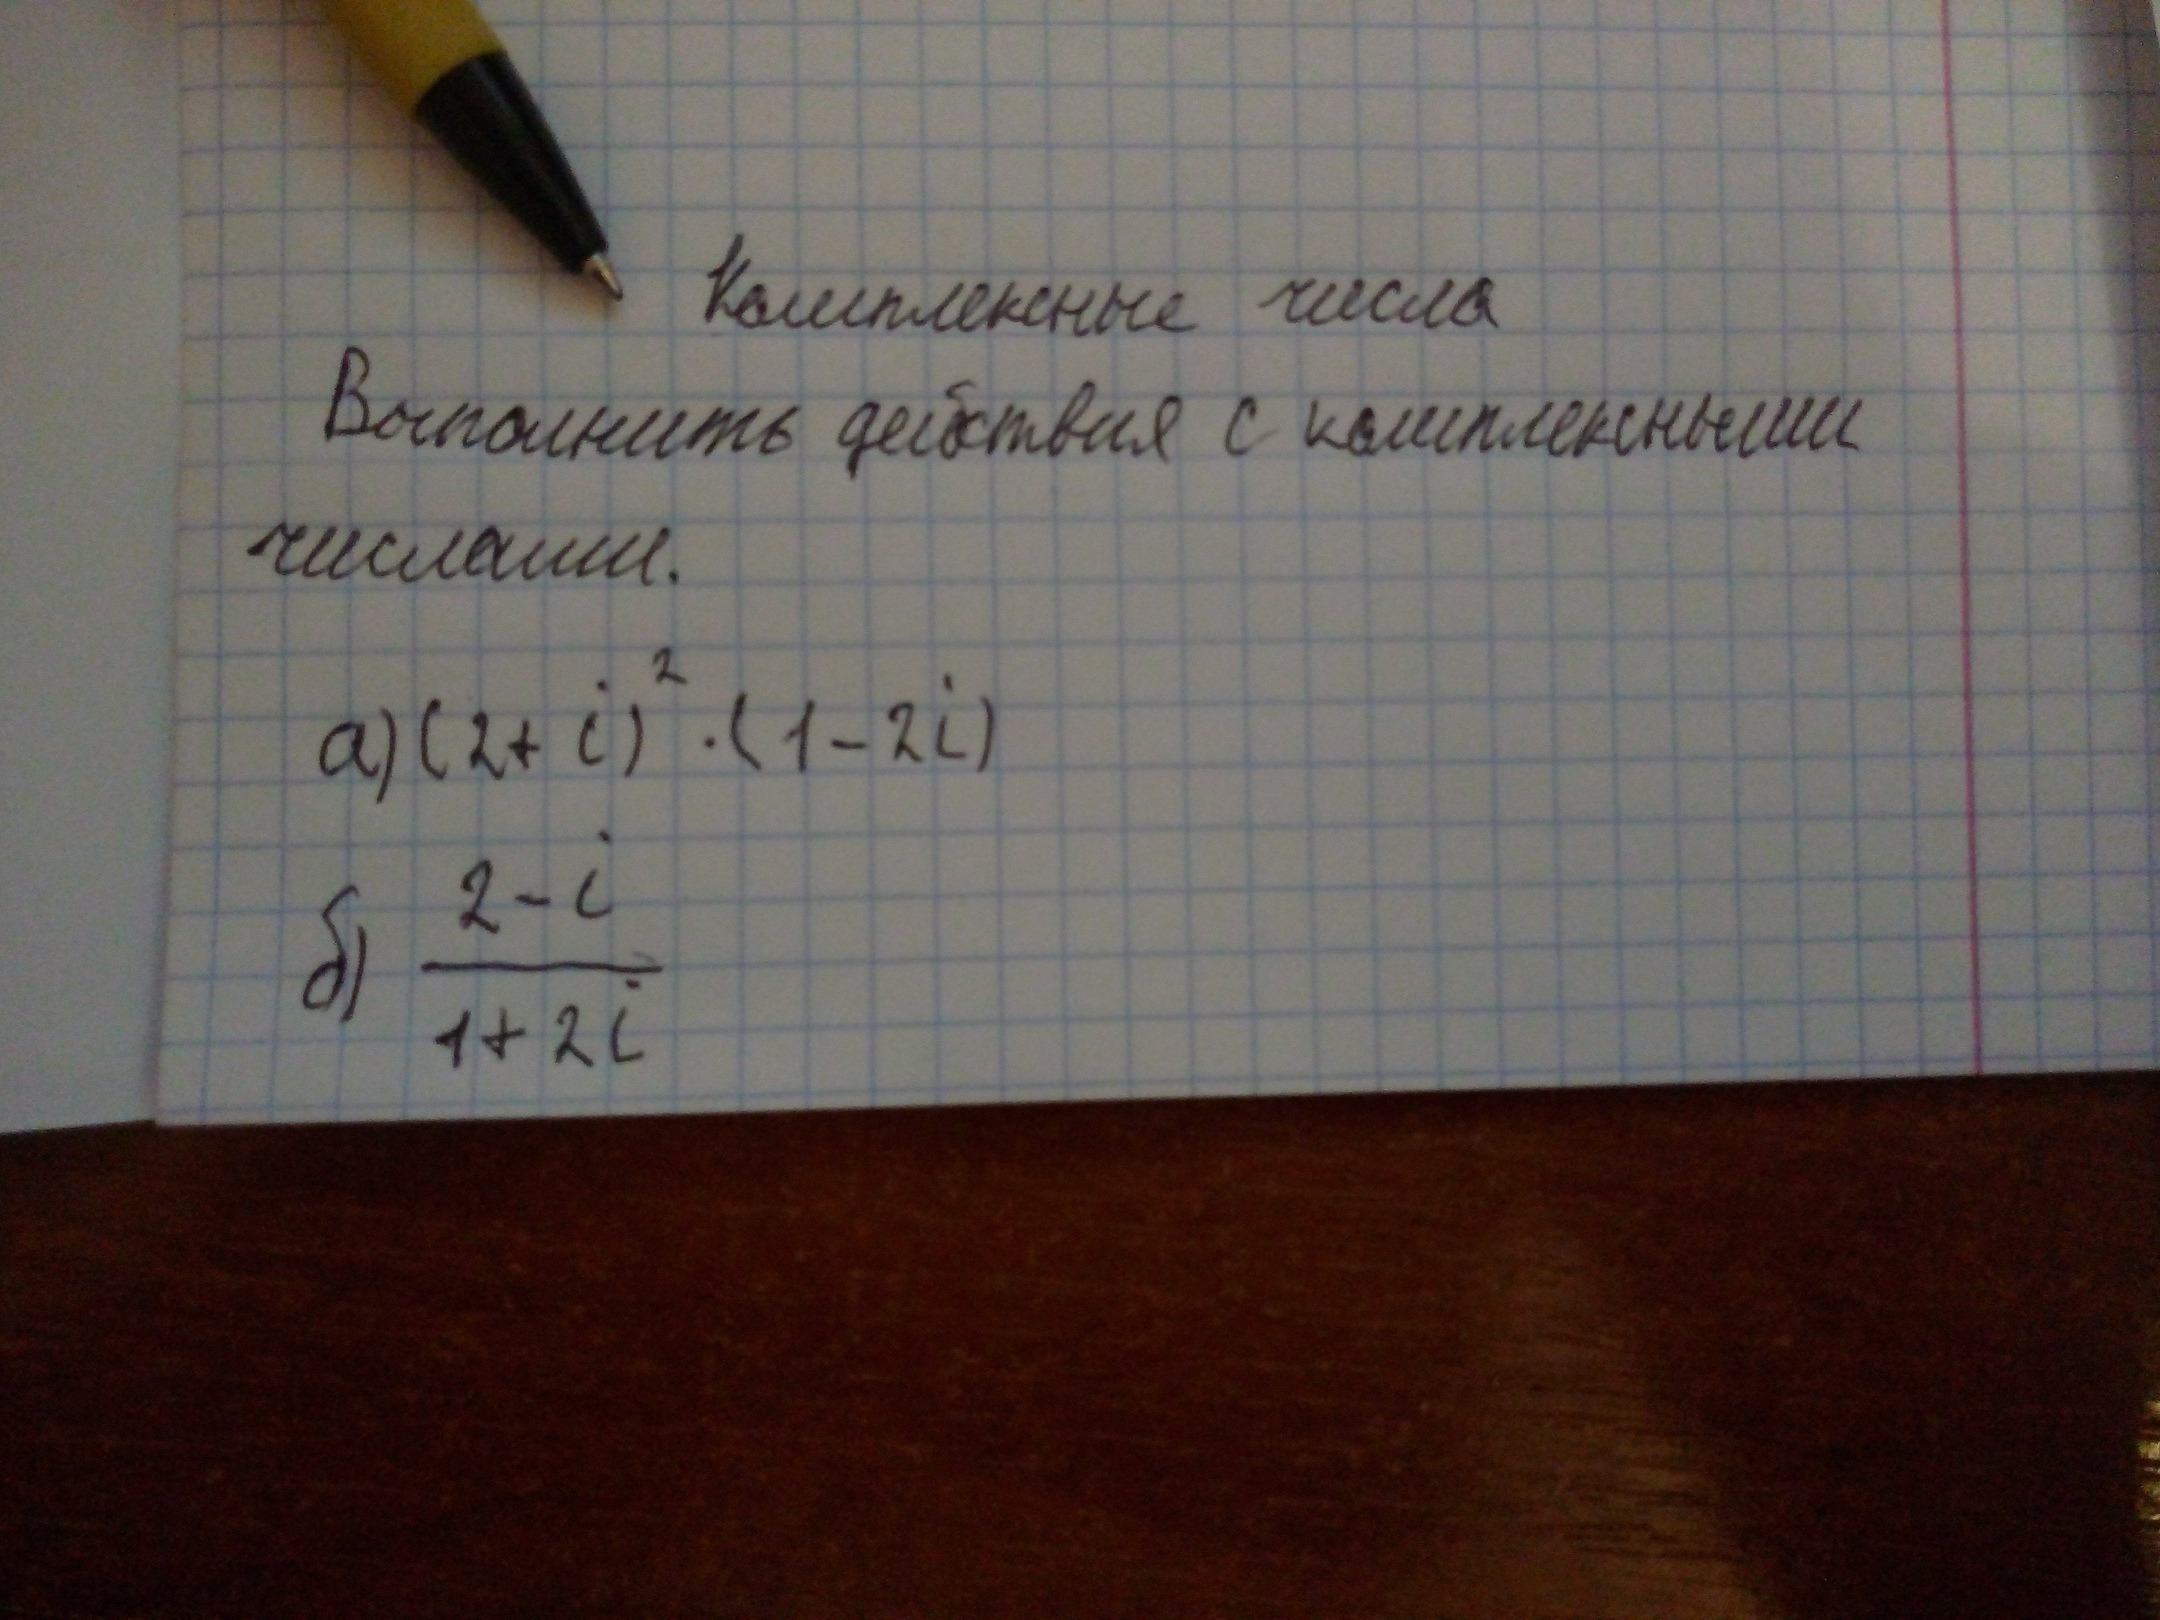 Комплексные числа
Выполнить действия с комплексными
числами.
а) (2+i)² · (1-2i)
б) 2-i
1+2i